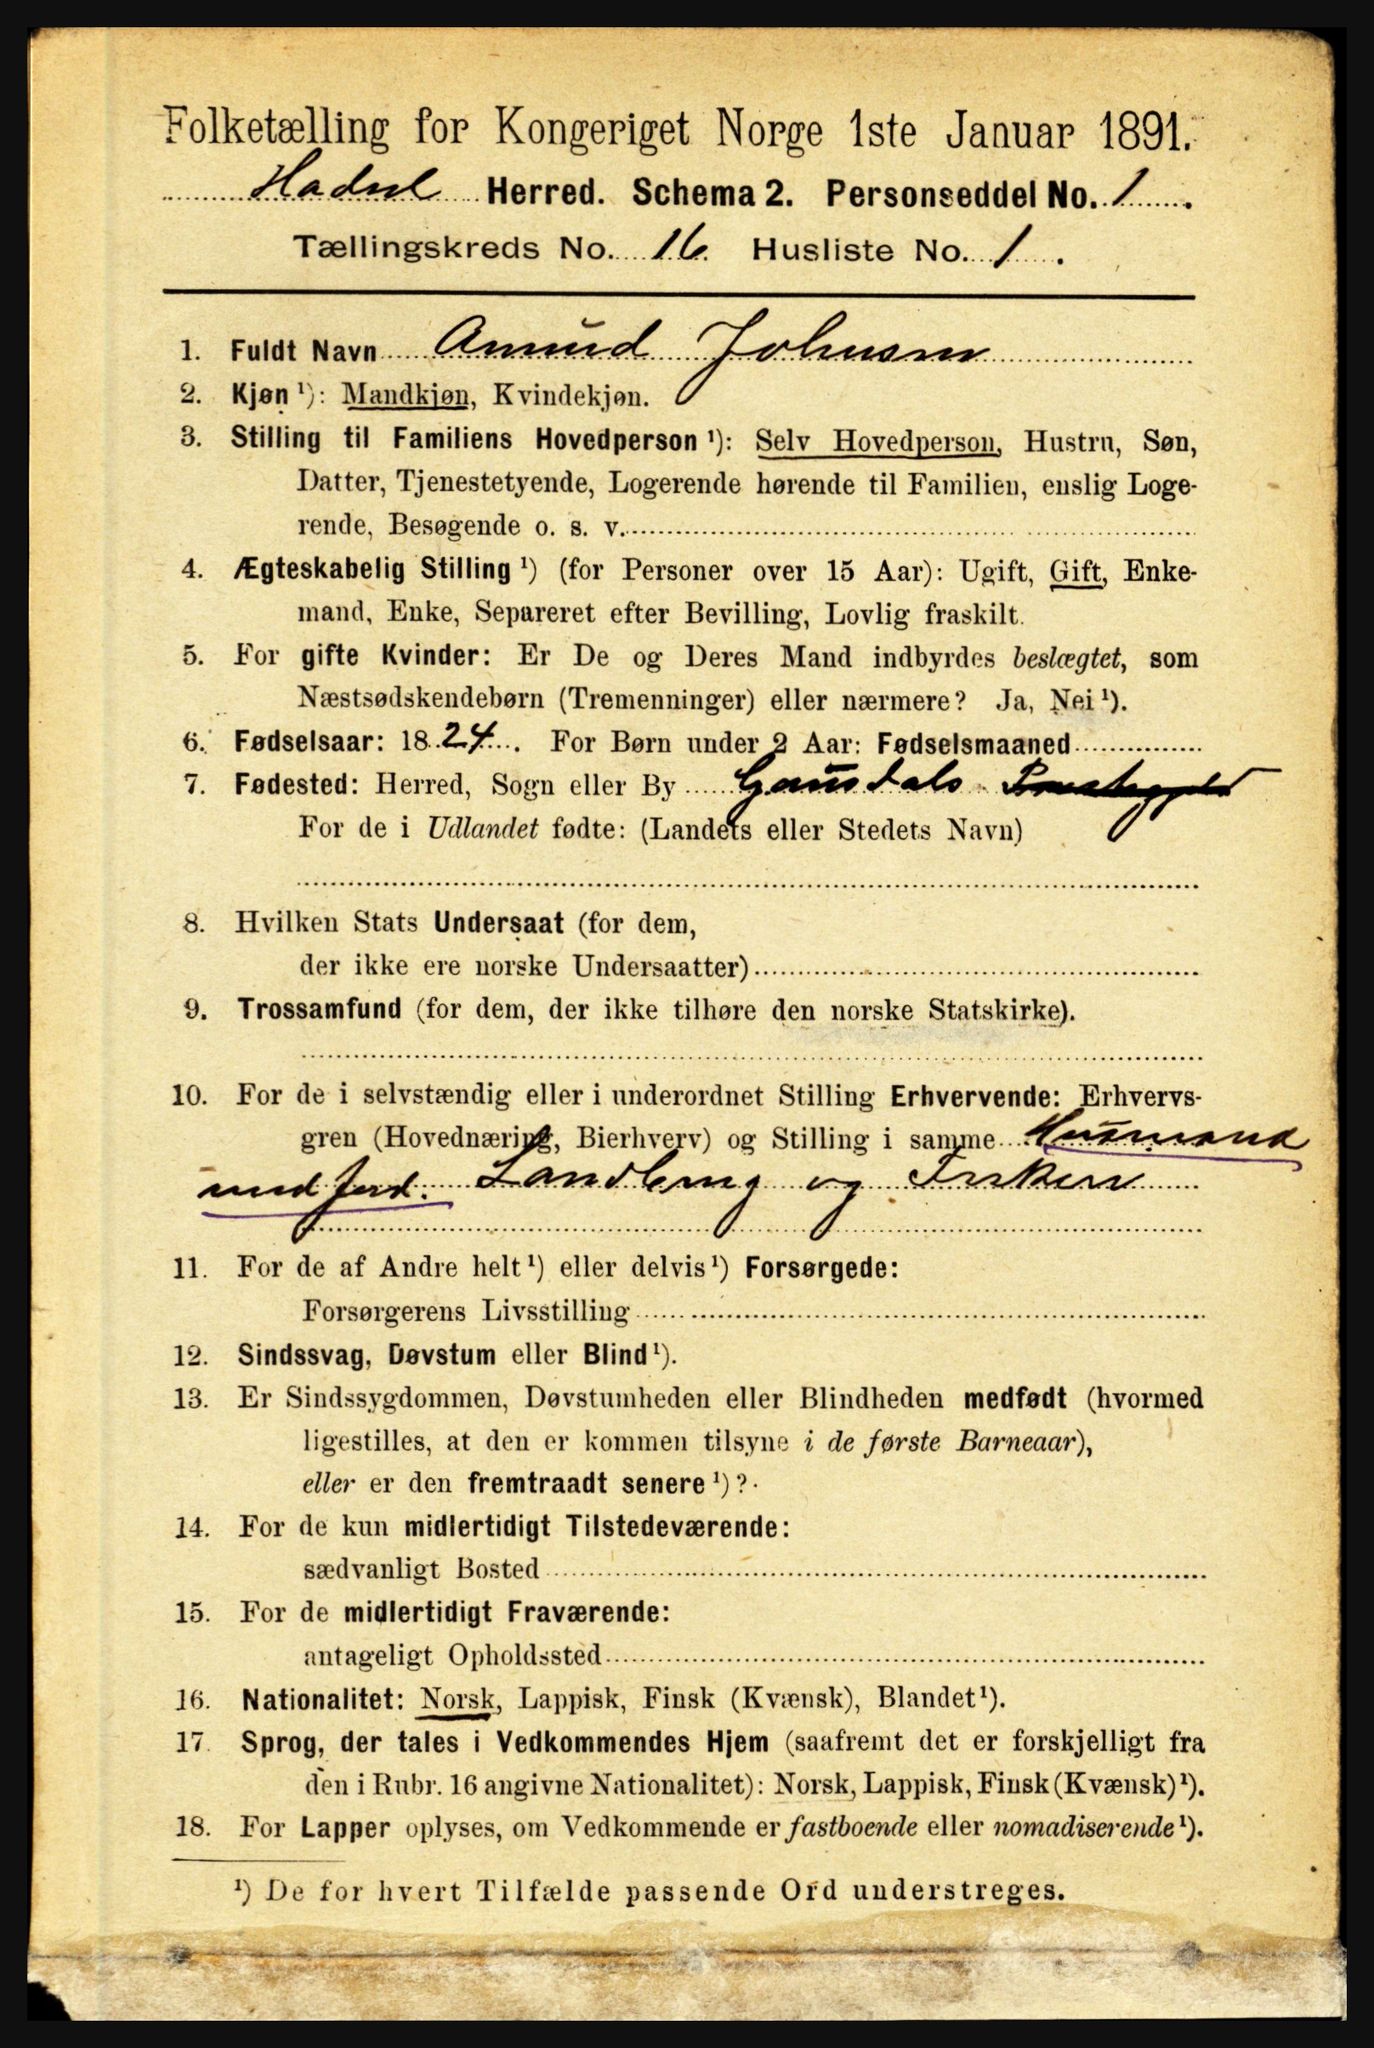 Folketælling for Kongeriget Norge 1ste Januar 1891.
Hadsel Herred. Schema 2. Personseddel No. 1.
Tællingskreds No. 16. Husliste No. 1.
1. Fuldt Navn Amund Johnsen
2. Kjøn ¹): Mandkjøn, Kvindekjøn.
3. Stilling til Familiens Hovedperson ¹): Selv Hovedperson, Hustru, Søn,
Datter, Tjenestetyende, Logerende hørende til Familien, enslig Loge-
rende, Besøgende o. s. v.
4. Ægteskabelig Stilling ¹) (for Personer over 15 Aar): Ugift, Gift, Enke-
mand, Enke, Separeret efter Bevilling, Lovlig fraskilt.
5. For gifte Kvinder: Er De og Deres Mand indbyrdes beslægtet, som
Næstsødskendebørn (Tremenninger) eller nærmere? Ja, Nei ¹).
6. Fødselsaar: 1824. For Børn under 2 Aar: Fødselsmaaned
7. Fødested: Herred, Sogn eller By Gausdals Præstegjeld
For de i Udlandet fødte: (Landets eller Stedets Navn)
8. Hvilken Stats Undersaat (for dem,
der ikke ere norske Undersaatter)
9. Trossamfund (for dem, der ikke tilhøre den norske Statskirke).
10. For de i selvstændig eller i underordnet Stilling Erhvervende: Erhvervs-
gren (Hovednæring, Bierhverv) og Stilling i samme Husmand
med Jord. Landbrug og Fiskeri
11. For de af Andre helt ¹) eller delvis ¹) Forsørgede:
Forsørgerens Livsstilling
12. Sindssvag, Døvstum eller Blind ¹).
13. Er Sindssygdommen, Døvstumheden eller Blindheden medfødt (hvormed
ligestilles, at den er kommen tilsyne i de første Barneaar),
eller er den fremtraadt senere ¹)?
14. For de kun midlertidigt Tilstedeværende:
sædvanligt Bosted
15. For de midlertidigt Fraværende:
antageligt Opholdssted
16. Nationalitet: Norsk, Lappisk, Finsk (Kvænsk), Blandet ¹).
17. Sprog, der tales i Vedkommendes Hjem (saafremt det er forskjelligt fra
den i Rubr. 16 angivne Nationalitet): Norsk, Lappisk, Finsk (Kvænsk) ¹).
18. For Lapper oplyses, om Vedkommende er fastboende eller nomadiserende ¹).
¹) De for hvert Tilfælde passende Ord understreges.